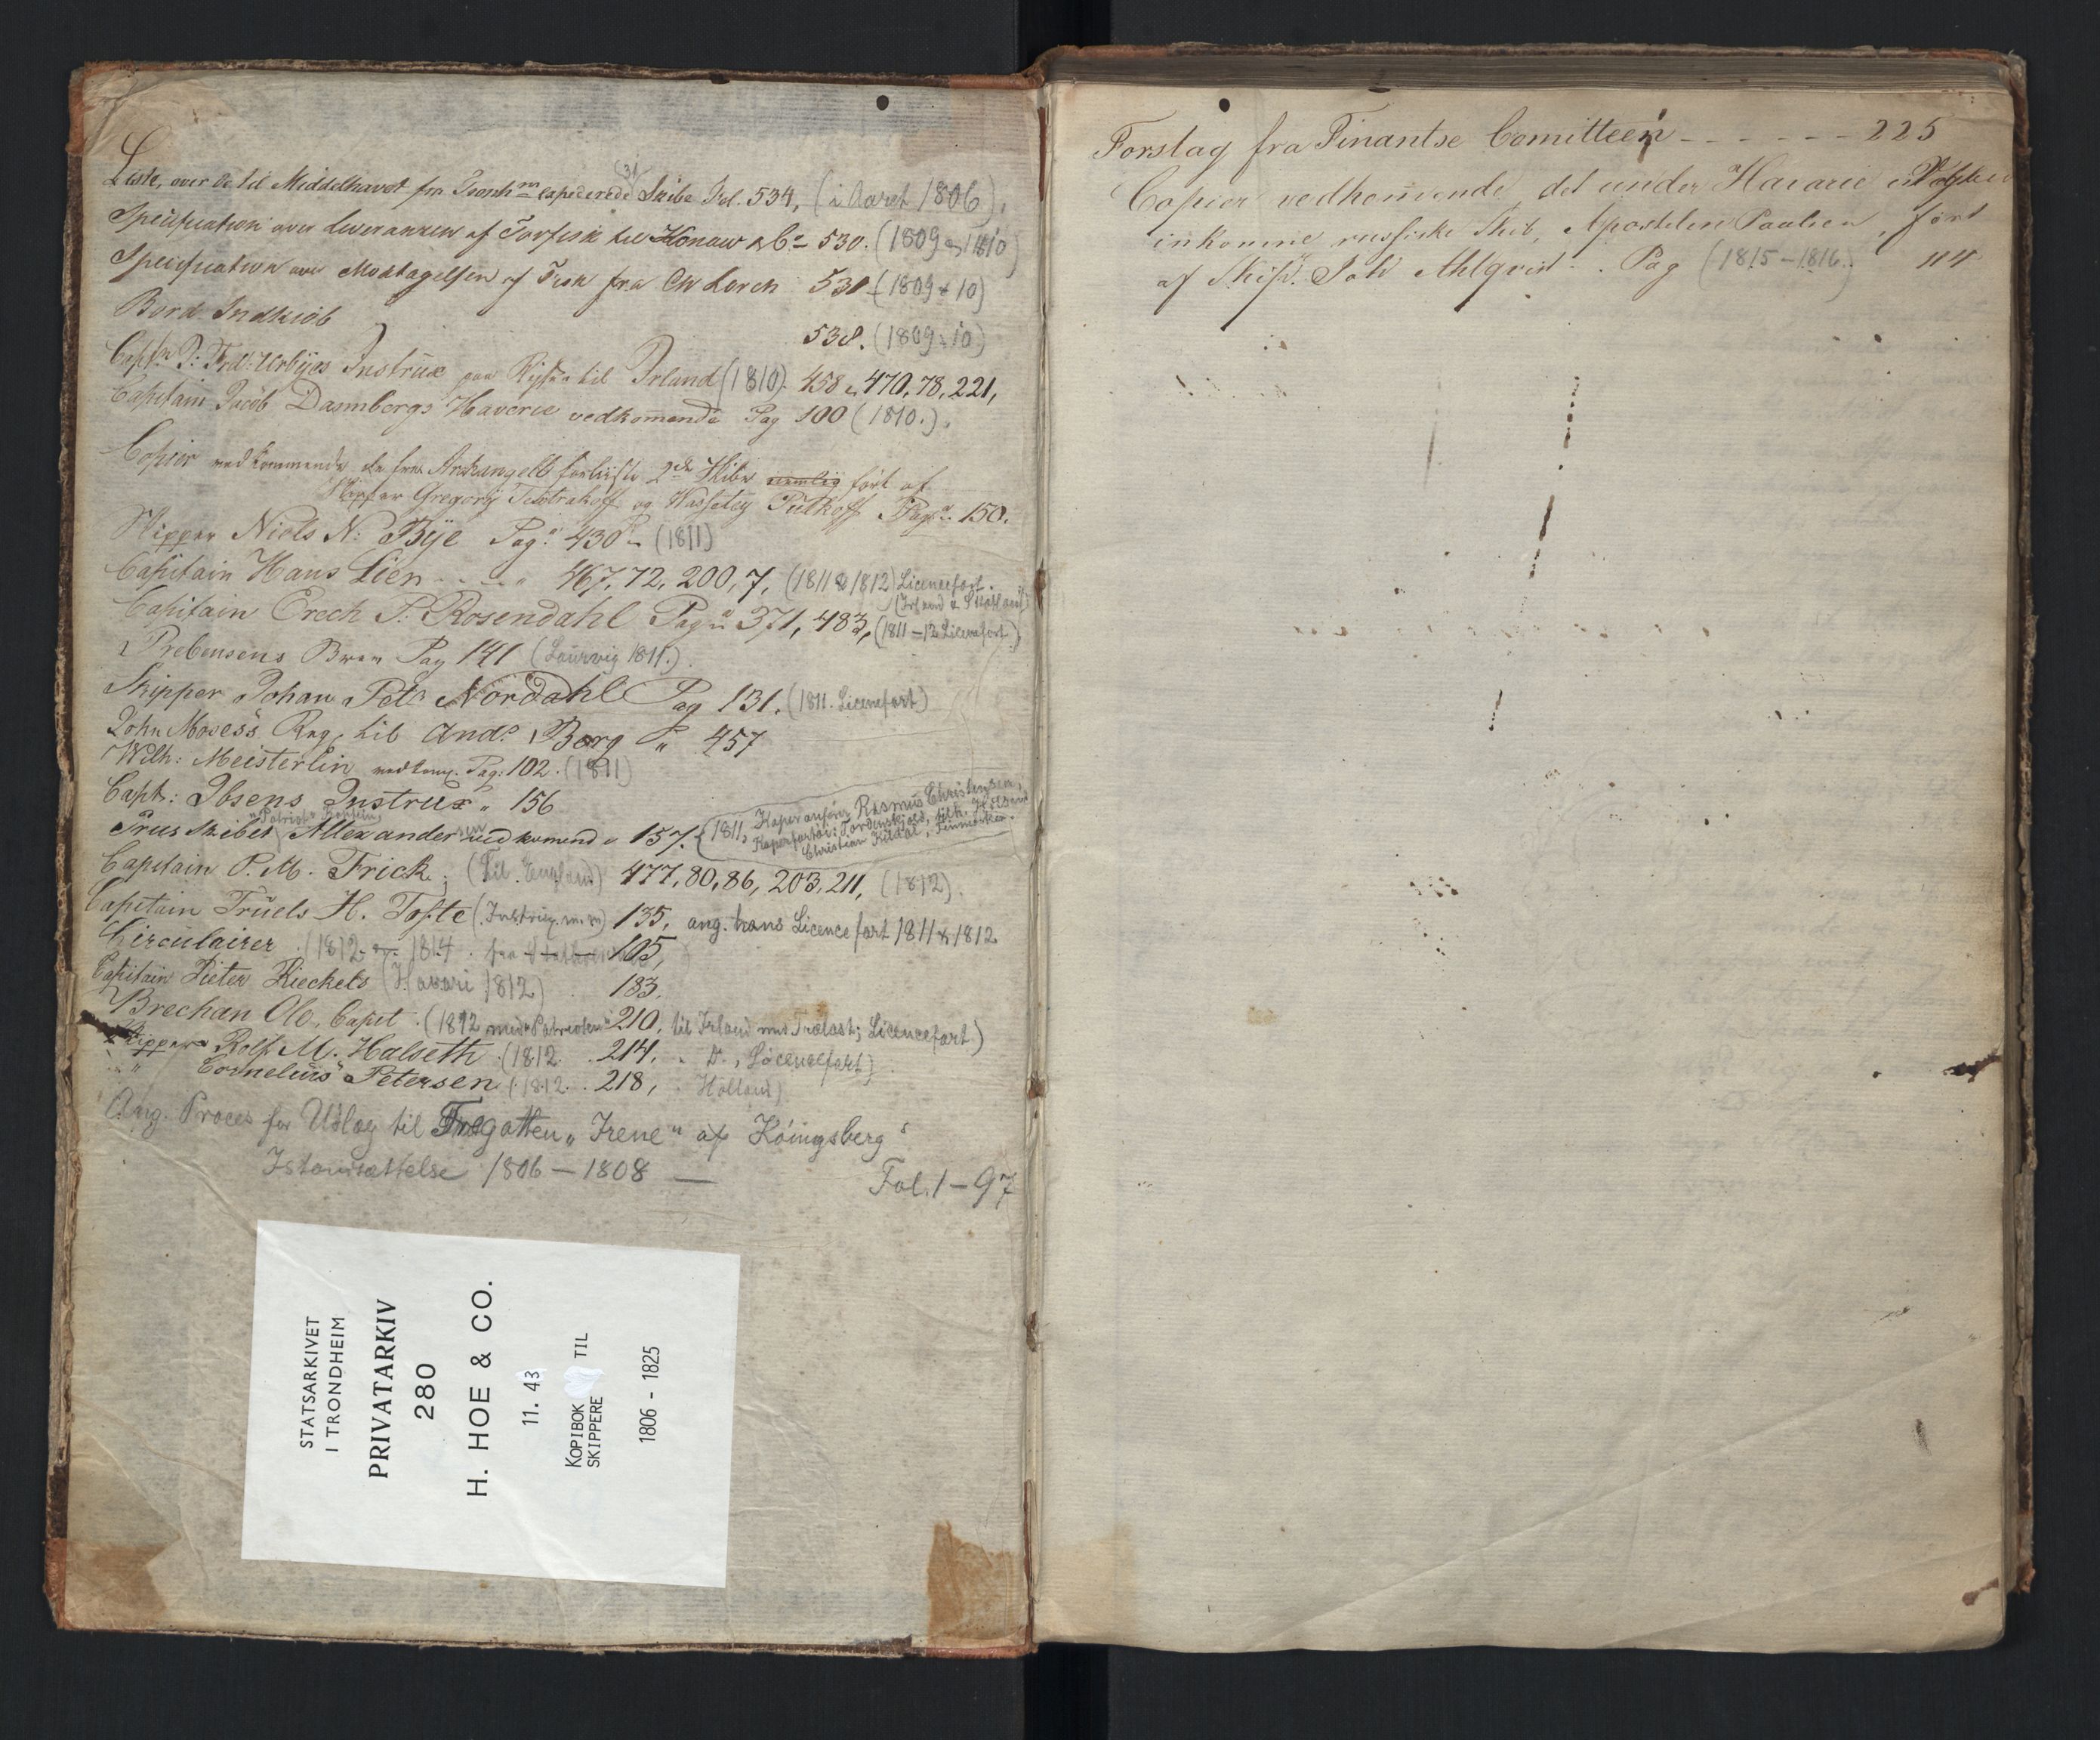 Liste, over de til Middelhavet fra Tronhm expederede (31) Skibe Fol. 534, (i Aaret 1806).
Specification over Leverancen af Tørfisk til Konow & Co 530. (1809 & 1810)
Specification over Modtagelsen af Fisk fra Ch Lorch 531 (1809 & 10)
Bord Indkiøb 538. (1809 & 10)
Captn P: Frd: Urbyes Instrux paa Rejsen til Irland (1810). 458 & 470, 78, 221,
Capitain Jacob Dannbergs Haverie vedkommende Pag 100 (1810.).
Copier vedkommende de fra Archangel forliste 2de Skibe ført af
Skipper Gregory og Wassetey Putkoff Pag: 150.
Skipper Niels N: Bye Pag: 430 (1811)
Capitain Hans Lien - - - " 467, 72, 200, 7, (1811 & 1812) Licencefart.
(Irland & Skotland)
Capitain Erech P. Rosendahl Pag: 371, 483, (1811-12 Licencefart.)
Prebensens Brev Pag 141 (Laurvig 1811.).
Skipper Johan Petr Nordahl Pag 131. (1811. Licencefart)
John Moses's Reg. til Ands Berg " 457
Wilh: Meisterlin vedkom. Pag: 102. (1811)
Capt: Ibsens Instrux " 156
Prus Skibet Allexander vedkomend " 157. (1811, Kaperanfører Rasmus Christensen,
Kaperfartøi: Tordenskjold, tilh.
Christian Kildal, Finmarken.
Capitain P. M. Frick. (til England) 477, 80, 86, 203, 211, (1812).
Capitain Truels H. Tofte (Instrux m.m) 135, ang. hans Licencefart 1811 & 1812
Circulairer (1812 - 1814 . fra 105,
Capitain Pieter Rieckels (Havari 1812) . 183.
Brechan Ole, Capt. (1812 med "Patrioten" 210, til Irland med Trælast; Licencefart.)
Skipper Rolf M. Halseth (1812. . 214, " Do., Licencefart)
" Cornelius Petersen (1812. . 218, . Holland)
Ang. Proces for Udlæg til Fregatten "Irene" af Köingsberg's
Istandsættelse 1806 - 1808 — Fol. 1 - 97
STATSARKIVET
I TRONDHEIM
PRIVATARKIV
280
H. HOE & CO.
11. 43
KOPIBOK TIL
SKIPPERE
1806 - 1825
Forslag fra Finantse Comitteen - - - - - - 225
Copier vedkommende det under Havarie
inkomne russiske Skib, Apostelen Paulsen, ført
af Skip. Joh Ahlqvist - . Pag (1815-1816.) 114